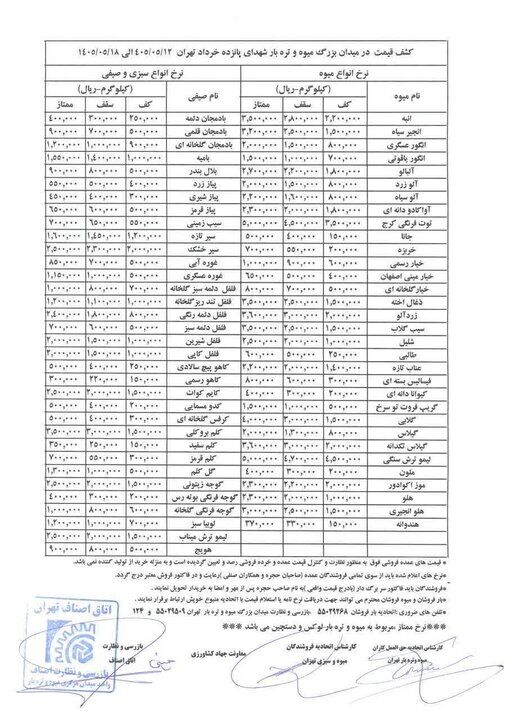 کشف قیمت در میدان بزرگ میوه و تره بار شهدای پانزده خرداد تهران ۴۰۵/۰۵/۱۲ الی ۱۴۰۵/۰۵/۱۸
نرخ انواع میوه نرخ انواع سبزی و صیفی
نام میوه (کیلوگرم-ریال) نام صیفی (کیلوگرم-ریال)
کف سقف ممتاز کف سقف ممتاز
انبه ۲,۲۰۰,۰۰۰ ۲,۸۰۰,۰۰۰ ۳,۵۰۰,۰۰۰ بادمجان دلمه ۲۵۰,۰۰۰ ۳۰۰,۰۰۰ ۴۰۰,۰۰۰
انجیر سیاه ۱,۵۰۰,۰۰۰ ۲,۵۰۰,۰۰۰ ۳,۲۰۰,۰۰۰ بادمجان قلمی ۵۰۰,۰۰۰ ۷۰۰,۰۰۰ ۹۰۰,۰۰۰
انگور عسگری ۸۰۰,۰۰۰ ۱,۵۰۰,۰۰۰ ۲,۰۰۰,۰۰۰ بادمجان گلخانه ای ۹۰۰,۰۰۰ ۱,۰۰۰,۰۰۰ ۱,۲۰۰,۰۰۰
انگور یاقوتی ۷۰۰,۰۰۰ ۱,۰۰۰,۰۰۰ ۱,۵۰۰,۰۰۰ بامیه ۱,۰۰۰,۰۰۰ ۱,۴۰۰,۰۰۰ ۱,۵۵۰,۰۰۰
آلبالو ۱,۸۰۰,۰۰۰ ۲,۲۰۰,۰۰۰ ۲,۷۰۰,۰۰۰ بلال بندر ۵۰۰,۰۰۰ ۸۰۰,۰۰۰ ۹۰۰,۰۰۰
آلو زرد ۸۰۰,۰۰۰ ۱,۵۰۰,۰۰۰ ۲,۰۰۰,۰۰۰ پیاز زرد ۴۰۰,۰۰۰ ۵۰۰,۰۰۰ ۵۵۰,۰۰۰
آلو سیاه ۸۰۰,۰۰۰ ۱,۶۰۰,۰۰۰ ۲,۰۰۰,۰۰۰ پیاز شیری ۳۰۰,۰۰۰ ۴۰۰,۰۰۰ ۴۵۰,۰۰۰
آواکادو دانه ای ۱,۸۰۰,۰۰۰ ۲,۰۰۰,۰۰۰ ۲,۳۰۰,۰۰۰ پیاز قرمز ۵۰۰,۰۰۰ ۶۰۰,۰۰۰ ۶۵۰,۰۰۰
توت فرنگی کرج ۳,۵۰۰,۰۰۰ ۴,۵۰۰,۰۰۰ ۵,۰۰۰,۰۰۰ سیب زمینی ۵۵۰,۰۰۰ ۶۵۰,۰۰۰ ۷۰۰,۰۰۰
جانا ۱۵۰,۰۰۰ ۴۰۰,۰۰۰ ۵۰۰,۰۰۰ سیر تازه ۱,۲۰۰,۰۰۰ ۱,۴۵۰,۰۰۰ ۱,۶۰۰,۰۰۰
خربزه ۲۰۰,۰۰۰ ۵۵۰,۰۰۰ ۷۰۰,۰۰۰ سیر خشک ۲,۰۰۰,۰۰۰ ۲,۳۰۰,۰۰۰ ۲,۵۰۰,۰۰۰
خیار رسمی ۶۰۰,۰۰۰ ۹۰۰,۰۰۰ ۱,۰۰۰,۰۰۰ غوره آبی ۵۰۰,۰۰۰ ۷۰۰,۰۰۰ ۸۵۰,۰۰۰
خیار مینی اصفهان ۴۰۰,۰۰۰ ۵۰۰,۰۰۰ ۶۵۰,۰۰۰ غوره عسگری ۵۰۰,۰۰۰ ۱,۰۰۰,۰۰۰ ۱,۱۵۰,۰۰۰
خیارگلخانه ای ۵۰۰,۰۰۰ ۷۰۰,۰۰۰ ۸۰۰,۰۰۰ فلفل دلمه سبز گلخانه ۷۰۰,۰۰۰ ۸۰۰,۰۰۰ ۱,۰۰۰,۰۰۰
ذغال اخته ۱,۵۰۰,۰۰۰ ۲,۵۰۰,۰۰۰ ۳,۵۰۰,۰۰۰ فلفل تند ریزگلخانه ۱,۰۰۰,۰۰۰ ۱,۱۰۰,۰۰۰ ۱,۲۰۰,۰۰۰
زردآلو ۲,۰۰۰,۰۰۰ ۳,۰۰۰,۰۰۰ ۳,۶۰۰,۰۰۰ فلفل دلمه رنگی ۸۰۰,۰۰۰ ۱,۸۰۰,۰۰۰ ۲,۴۰۰,۰۰۰
سیب گلاب ۱,۵۰۰,۰۰۰ ۲,۵۰۰,۰۰۰ ۳,۵۰۰,۰۰۰ فلفل دلمه سبز ۵۰۰,۰۰۰ ۶۰۰,۰۰۰ ۷۰۰,۰۰۰
شلیل ۱,۰۰۰,۰۰۰ ۲,۰۰۰,۰۰۰ ۲,۵۰۰,۰۰۰ فلفل شیرین ۱,۰۰۰,۰۰۰ ۱,۵۰۰,۰۰۰ ۲,۰۰۰,۰۰۰
طالبی ۲۵۰,۰۰۰ ۵۰۰,۰۰۰ ۶۰۰,۰۰۰ فلفل کاپی ۱,۰۰۰,۰۰۰ ۱,۵۰۰,۰۰۰ ۲,۰۰۰,۰۰۰
عناب تازه ۱,۴۰۰,۰۰۰ ۲,۰۰۰,۰۰۰ ۲,۲۰۰,۰۰۰ کاهو پیچ سالادی ۲۵۰,۰۰۰ ۴۰۰,۰۰۰ ۵۰۰,۰۰۰
فیسالیس بسته ای ۳۰۰,۰۰۰ ۶۰۰,۰۰۰ ۸۰۰,۰۰۰ کاهو رسمی ۱۵۰,۰۰۰ ۲۲۰,۰۰۰ ۳۰۰,۰۰۰
کیوانا دانه ای ۲۰۰,۰۰۰ ۳۰۰,۰۰۰ ۴۰۰,۰۰۰ کایم کوات ۱,۵۰۰,۰۰۰ ۲,۰۰۰,۰۰۰ ۲,۵۰۰,۰۰۰
گریپ فروت تو سرخ ۵۰۰,۰۰۰ ۱,۰۰۰,۰۰۰ ۱,۵۰۰,۰۰۰ کدو مسمایی ۲۰۰,۰۰۰ ۴۰۰,۰۰۰ ۵۰۰,۰۰۰
گلابی ۱,۵۰۰,۰۰۰ ۲,۰۰۰,۰۰۰ ۴,۰۰۰,۰۰۰ کرفس گلخانه ای ۳۰۰,۰۰۰ ۴۰۰,۰۰۰ ۵۰۰,۰۰۰
گیلاس ۸۰۰,۰۰۰ ۱,۳۰۰,۰۰۰ ۲,۰۰۰,۰۰۰ کلم بروکلی ۱,۵۰۰,۰۰۰ ۳,۰۰۰,۰۰۰ ۳,۵۰۰,۰۰۰
گیلاس تکدانه ۲,۰۰۰,۰۰۰ ۳,۰۰۰,۰۰۰ ۳,۶۰۰,۰۰۰ کلم سفید ۱۵۰,۰۰۰ ۲۵۰,۰۰۰ ۳۵۰,۰۰۰
لیمو ترش سنگی ۴,۵۰۰,۰۰۰ ۴,۷۰۰,۰۰۰ ۵,۰۰۰,۰۰۰ کلم قرمز ۳۰۰,۰۰۰ ۵۵۰,۰۰۰ ۷۰۰,۰۰۰
ملون ۲۰۰,۰۰۰ ۳۰۰,۰۰۰ ۴۰۰,۰۰۰ گل کلم ۵۰۰,۰۰۰ ۱,۰۰۰,۰۰۰ ۱,۳۰۰,۰۰۰
موز اکوادور ۲,۰۰۰,۰۰۰ ۲,۲۰۰,۰۰۰ ۲,۳۰۰,۰۰۰ گوجه زیتونی ۱,۵۰۰,۰۰۰ ۲,۰۰۰,۰۰۰ ۲,۵۰۰,۰۰۰
هلو ۱,۰۰۰,۰۰۰ ۲,۰۰۰,۰۰۰ ۲,۳۰۰,۰۰۰ گوجه فرنگی بوته رس ۲۰۰,۰۰۰ ۳۰۰,۰۰۰ ۴۰۰,۰۰۰
هلو انجیری ۱,۵۰۰,۰۰۰ ۲,۰۰۰,۰۰۰ ۲,۵۰۰,۰۰۰ گوجه فرنگی گلخانه ۶۰۰,۰۰۰ ۸۰۰,۰۰۰ ۱,۰۰۰,۰۰۰
هندوانه ۱۵۰,۰۰۰ ۳۳۰,۰۰۰ ۳۷۰,۰۰۰ لوبیا سبز ۷۰۰,۰۰۰ ۱,۰۰۰,۰۰۰ ۱,۲۰۰,۰۰۰
لیمو ترش میناب ۱,۰۰۰,۰۰۰ ۲,۰۰۰,۰۰۰ ۲,۵۰۰,۰۰۰
هویج ۵۰۰,۰۰۰ ۸۰۰,۰۰۰ ۹۰۰,۰۰۰
* قیمت های عمده فروشی فوق به منظور نظارت و کنترل قیمت عمده و خرده فروشی رصد و تعیین گردیده است و به منزله خرید از تولید کننده نمی باشد.
*نرخ های اعلام شده باید از سوی تمامی فروشندگان عمده (صاحبین حجره و همکاران صنفی) رعایت و در فاکتور فروش معتبر درج گردد.
*فروشندگان باید فاکتور سر برگ دار (بادرج قیمت واقعی) به نام صاحب حجره پس از مهر و امضا به خریدار تحویل دهند.
*بار فروشان و میوه فروشان محترم می توانند جهت دریافت نرخ نامه یا استعلام قیمت با اتحادیه متبوع خویش ارتباط برقرار نمایند.
*تلفن های ضروری: اتحادیه بار فروشان ۵۵۰۲۹۲۶۸ بازرسی و نظارت میدان بزرگ میوه و تره بار تهران ۵۵۰۲۹۵۰۹ و ۱۲۴
***نرخ ممتاز مربوط به میوه و تره بار لوکس و دستچین می باشد ***
کارشناس اتحادیه حق العمل کاران
میوه و تره بار تهران
کارشناس اتحادیه فروشندگان
میوه و سبزی تهران
معاونت جهاد کشاورزی
بازرسی و نظارت
اتاق اصناف
اتاق اصناف تهران
بازرسی و نظارت اصناف
واحد میدان مرکزی میوه و تره بار